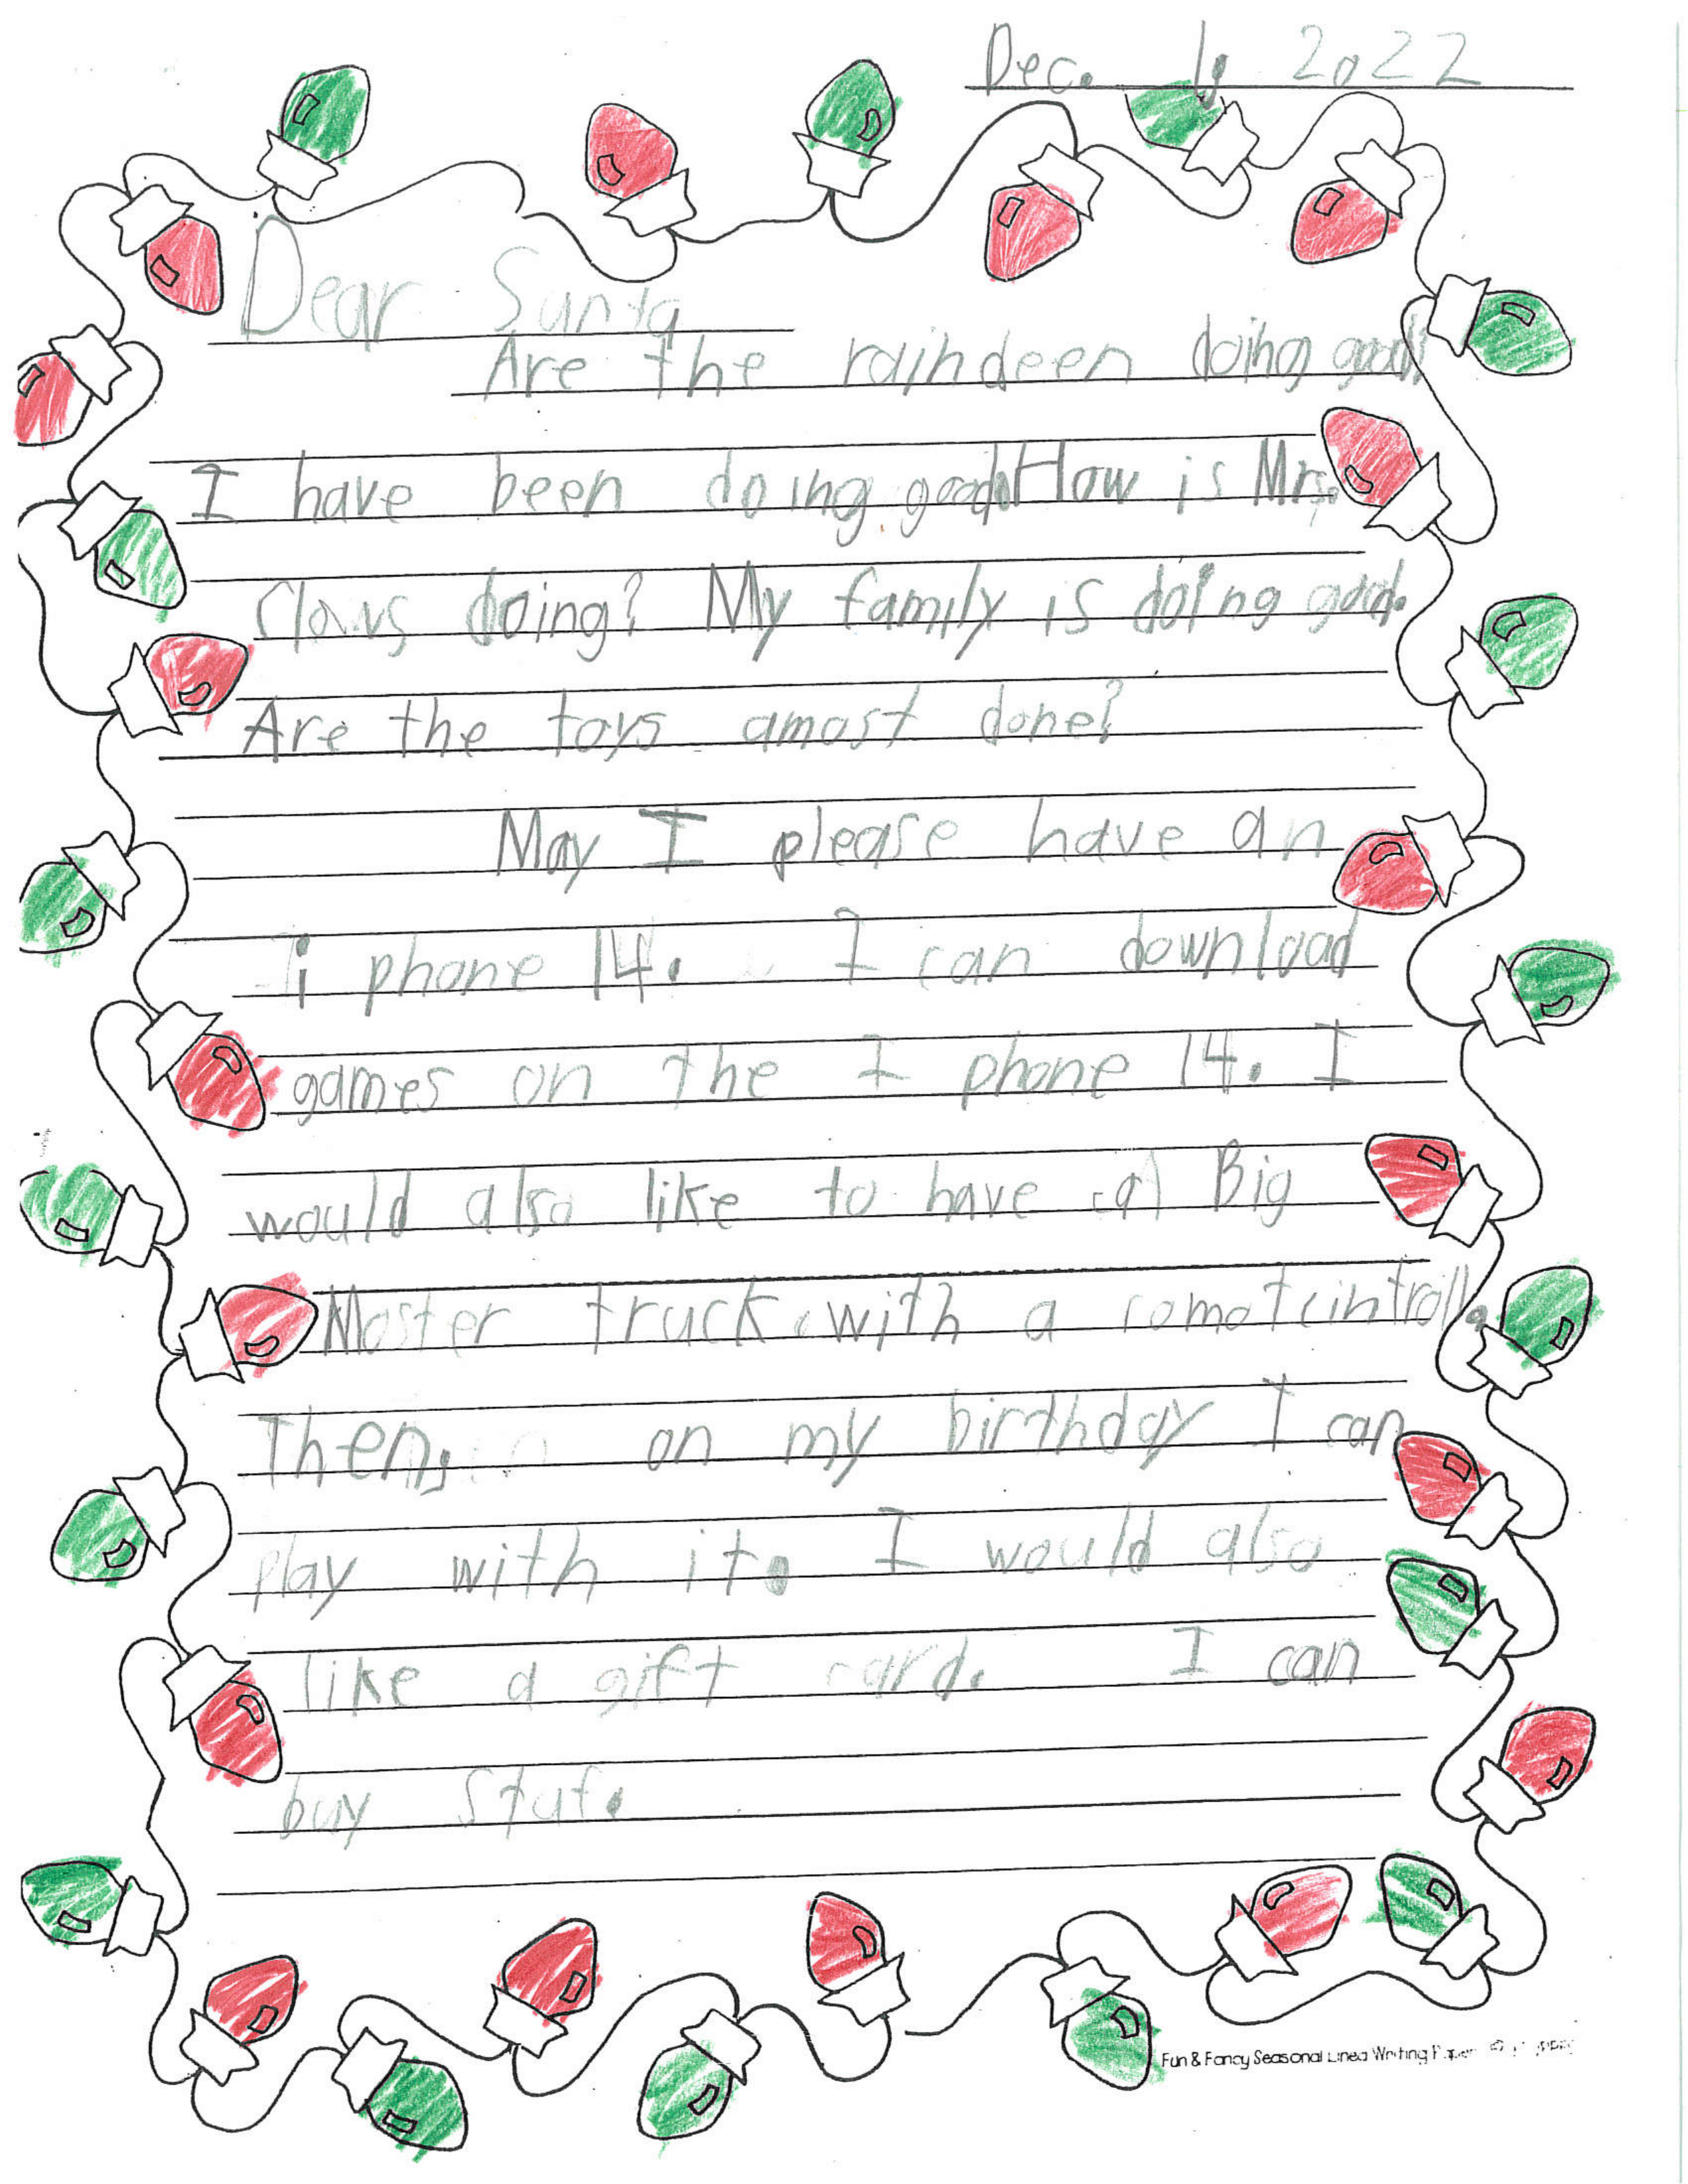 Dec. 1, 2022
Dear Santa
Are the raindeen doing good
I have been doing good. How is Mrs.
Claws doing? My family is doing good.
Are the toys amost done?
May I please have an
i phone 14. I can download
games on the I phone 14. I
would also like to have a Big
Moster truck with a comotcintroll.
Then, on my birthday I can
play with it. I would also
like a gift card. I can
buy stuf.
Fun & Fancy Seasonal Lined Writing Paper